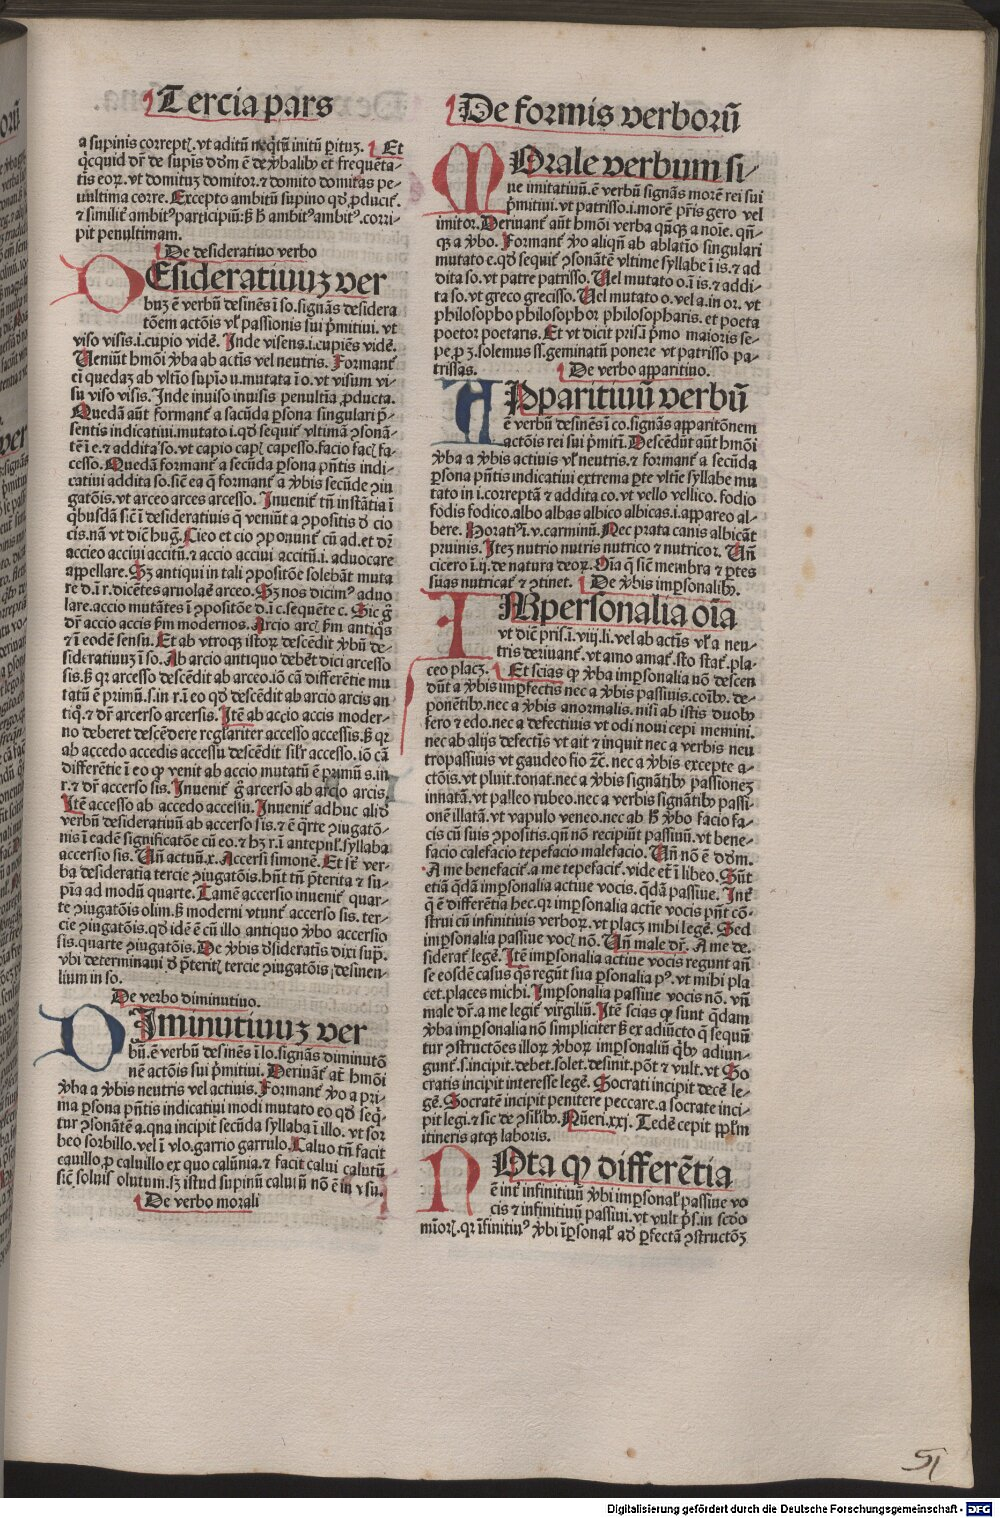 Tercia pars
a supinis correptꝭ. vt aditū neq̈tū initū ꝑituꝫ. Et
q̇cquid dr̄ de supīs dōm ē de v̓balib⁹ et frequēta⸗
tīs eoꝝ. vt domituꝫ domitor. ⁊ domito domitas pe⸗
nultima corre. Excepto ambitū supino qđ ꝓducit᷑.
⁊ similit᷑ ambit⁹ participiū: ꝫ h̄ ambit⁹ ambit⁹. corri⸗
pit penultimam.
De desideratiuo verbo
DEsideratiuuꝫ ver
buꝫ ē verbū desinēs ī so. signās desidera
tōem actōis vl̓ passionis sui p̓mitiui. vt
viso visis .i. cupio vidē. Inde visens .i. cupiēs vidē.
Ueniūt hmōi v̓ba ab actīs vel neutris. Formant᷑
ei quedaꝫ ab vltīo supīo u. mutata ī o. vt visum vi⸗
su viso visis. Inde inuiso inuisis penultīa ꝓducta.
Quedā aūt formant᷑ a sacūda ꝑsona singulari p̄⸗
sentis indicatiui. mutato i. qđ sequit᷑ vltimā ꝯsonā⸗
tē ī e. ⁊ addita so. vt capio capꝭ capesso. facio facꝭ fa⸗
cesso. Quedā formant᷑ a secūda ꝑsona pn̄tis indi⸗
catiui addita so. sic̄ ea q̄ formant᷑ a v̓bis secūde ꝯiu
gatōis. vt arceo arces arcesso. Inuenit᷑ tn̄ instātia ī
q̇busdā sic̄ ī desideratiuis q̄ veniūt a ꝯpositis đ cio
cis. nā vt dic̄ hug. Cieo et cio ꝯponunt᷑ cū ad. et dr̄
accieo acciui accitū. ⁊ accio acciui accitū .i. aduocare
appellare. Sꝫ antiqui in tali ꝯpositōe solebāt muta
re d. ī r. dicētes aruolaē arceo. Sꝫ nos dicim⁹ aduo
lare. accio mutātes ī ꝯpositōe d. ī c. sequēte c. Sic ḡ
dr̄ accio accis ẜm modernos. Arcio arcꝭ ẜm antiq̇s
⁊ ī eodē sensu. Et ab vtroqꝫ istoꝝ descēdit v̓bū de⸗
sideratiuuꝫ ī so. Ab arcio antiquo debēt dici arcesso
sis. ꝫ qꝛ arcesso descēdit ab arceo. iō cā differētie mu
tatū ē primū .s. in r. ī eo qđ descēdit ab arcio arcis an
tiq̇. ⁊ dr̄ arcerso arcersis. Itē ab accio accis moder⸗
no deberet descēdere regl̓ariter accesso accessis. ꝫ qꝛ
ab accedo accedis accessu descēdit silr̓ accesso. iō cā
differētie ī eo qꝫ venit ab accio mutatū ē primū s. in
r. ⁊ dr̄ accerso sis. Inuenit᷑ ḡ arcerso ab arcio arcis.
Itē accesso ab accedo accessu. Inuenit᷑ adhuc aliđ
verbū desideratiuū ab accerso sis. ⁊ ē q̄rte ꝯiugatō⸗
nis ī eadē significatōe cū eo. ⁊ hꝫ r. ī antepul̓. syllaba
accersio sis. Uñ actuū. x. Accersi simonē. Et sr̄t ver⸗
ba desideratia tercie ꝯiugatōis. hn̄t tn̄ p̄terita ⁊ su⸗
pīa ad modū quarte. Tamē accersio inuenit᷑ quar⸗
te ꝯiugatōis olim. ꝫ moderni vtunt᷑ accerso sis. ter⸗
cie ꝯiugatōis. qđ idē ē cū illo antiquo v̓bo accersio
sis. quarte ꝯiugatōis. De v̓bis dsideratīs dixi supͣ.
vbi determinaui đ p̄teritꝭ tercie ꝯiugatōis, desinen⸗
tium in so.
De verbo diminutiuo.
DIminutiuuꝫ ver
bū. ē verbū desinēs ī lo. signās diminutō
nē actōis sui p̓mitiui. Deriuāt᷑ at̄ hmōi
v̓ba a v̓bis neutris vel actiuis. Formant᷑ v̓o a pri⸗
ma ꝑsona pn̄tis indicatiui modi mutato eo qđ seq̄⸗
tur ꝯsonātē a. qna incipit secūda syllaba ī illo. vt sor
beo sorbillo. vel ī vlo. garrio garrulo. Caluo tn̄ facit
cauillo, ꝓ caluillo ex quo calūnia. ⁊ facit calui calutū
sic̄ soluis olutum. sꝫ istud supinū caluiū nō ē in vsu.
De verbo morali
De formis verborū
MOrale verbum si⸗
ue imitatiuū. ē verbū signās morē rei sui
p̓mitiui. vt patrisso .i. morē pr̄is gero vel
imitor. Deriuant᷑ aūt hmōi verba qn̄qꝫ a noīe. qn̄⸗
qꝫ a v̓bo. Formant᷑ v̓o aliqn̄ ab ablatīo singulari
mutato e. qđ sequit᷑ ꝯsonātē vltime syllabe ī is. ⁊ ad
dita so. vt patre patrisso. Uel mutato o. ī is. ⁊ addi⸗
ta so. vt greco grecisso. Uel mutato o. vel a. in or. vt
philosopho philosophor philosopharis. et poeta
poetor poetaris. Et vt dicit pris. ī p̓mo maioris se⸗
pe, ꝓ ꝫ. solemus ss. geminatū ponere vt patrisso pa⸗
trissas.
De verbo apparitiuo.
APparitiuū verbū
ē verbū desinēs ī co. signās apparitōnem
actōis rei sui p̓mitī. Descēdūt aūt hmōi
v̓ba a v̓bis actiuis vl̓ neutris. ⁊ formant᷑ a secūda
ꝑsona pn̄tis indicatiui extrema ꝑte vltīe syllabe mu
tato in i. correptā ⁊ addita co. vt vello vellico. fodio
fodis fodico. albo albas albico albicas .i. appareo al⸗
bere. Horati⁹ ī. v. carminū. Nec prata canis albicāt
pruinis. Iteꝫ nutrio nutris nutrico ⁊ nutricor. Uñ
cicero ī. ij. de natura deoꝝ. Oīa q̄ sic̄ membra ⁊ ꝑtes
suas nutricat᷑ ⁊ ꝯtinet. De v̓bis imꝑsonalib⁹.
IMpersonalia oīa
vt dic̄ pris. ī. viij. li. vel ab actīs vl̓ a neu⸗
tris deriuant᷑. vt amo amat᷑. sto stat᷑. pla⸗
ceo placꝫ. Et scias qꝫ v̓ba imꝑsonalia nō descen
dūt a v̓bis imꝑfectis nec a v̓bis passiuis. coīb⁹. de⸗
ponētib⁹. nec a v̓bis anormalis. nisi ab istis duob⁹
fero ⁊ edo. nec a defectiuis vt odi noui cepi memini.
nec ab alijs defectīs vt ait ⁊ inquit nec a verbis neu
tropassiuis vt gaudeo fio ⁊c̄. nec a v̓bis excepte a⸗
ctōis. vt pluit. tonat. nec a v̓bis signātib⁹ passioneꝫ
innatā. vt palleo rubeo. nec a verbis signātib⁹ passi⸗
onē illatā. vt vapulo veneo. nec ab h̄ v̓bo facio fa⸗
cis cū suis ꝯpositis. qn̄ nō recipiūt passiuū. vt bene⸗
facio calefacio tepefacio malefacio. Uñ nō ē dōm.
A me benefacit᷑. a me tepefacit᷑. vide et̄ ī libeo. Sūt
etiā q̄dā imꝑsonalia actiue vocis. q̄dā passiue. Int᷑
q̄ ē differētia hec. qꝛ imꝑsonalia actīe vocis pn̄t cō⸗
strui cū infinitiuis verboꝝ. vt placꝫ mihi legē. Sed
imꝑsonalia passiue vocꝭ nō. Uñ male dr̄. A me de⸗
siderat᷑ legē. Itē imꝑsonalia actiue vocis regunt an̄
se eosdē casus q̄s regūt sua ꝑsonalia p⁹. vt mihi pla
cet. places michi. Imꝑsonalia passiue vocis nō. vn̄
male dr̄. a me legit᷑ virgiliū. Itē scias qꝫ sunt q̄dam
v̓ba imꝑsonalia nō simpliciter ꝫ ex adiūcto q̄ sequū
tur ꝯstructōes illoꝝ v̓boꝝ imꝑsonaliū q̇b⁹ adiun⸗
gunt᷑ .s. incipit. debet. solet. desinit. pōt ⁊ vult. vt So
cratis incipit interesse legē. Socrati incipit decē le⸗
gē. Socratē incipit penitere peccare. a socrate inci⸗
pit legi. ⁊ sic de ꝯsilib⁹. Nūeri. xxj. Tedē cepit ppl̓m
itineris atqꝫ laboris.
NOta qꝫ differētia
ē int᷑ infinitiuū v̓bi imꝑsonal̓ passiue vo
cis ⁊ infinitiuū passiui. vt vult pͥs. in scđo
mīorꝭ. qꝛ īfinitiu⁹ v̓bi īꝑsonal̓ ad ꝑfectā ꝯstructōꝫ
51
Digitalisierung gefördert durch die Deutsche Forschungsgemeinschaft - DFG